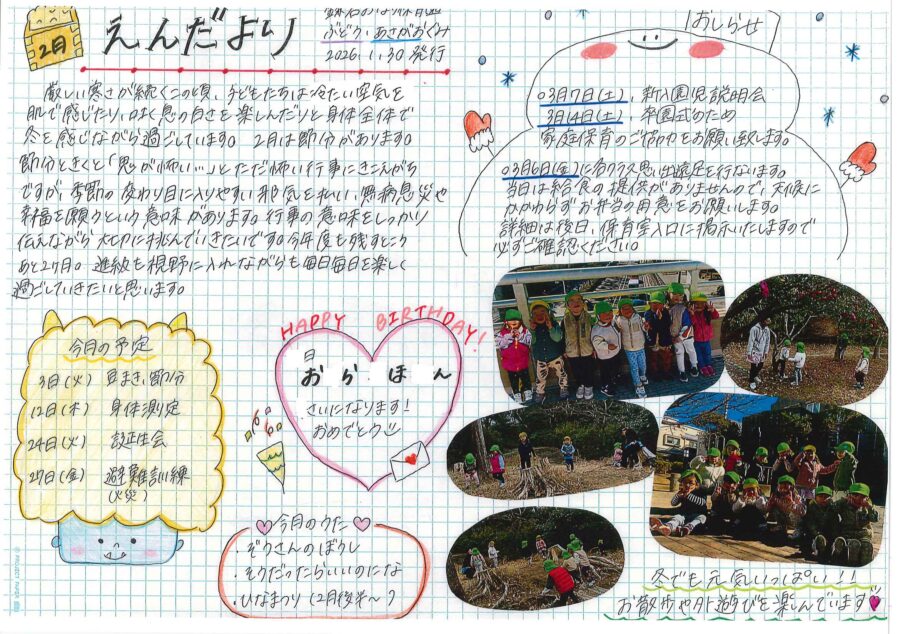 2月
えんだより
ぶどう・あさがおぐみ
2026.1.30 発行
厳しい寒さが続くこの頃、子どもたちは冷たい空気を
肌で感じたり、吐く息の白さを楽しんだりと身体全体で
冬を感じながら過ごしています。2月は節分があります。
節分ときくと「鬼が怖い…」とただ怖い行事にきこえがち
ですが、季節の変わり目に入りやすい邪気を払い、無病息災や
幸福を願うという意味があります。行事の意味をしっかり
伝えながら大切に挑んでいきたいです。今年度も残すところ
あと2ヶ月。進級も視野に入れながらも毎日毎日を楽しく
過ごしていきたいと思います。
おしらせ
○3月7日(土)、新入園児説明会
3月14日(土)、卒園式のため
家庭保育のご協力をお願い致します。
○3月6日(金)に各クラス思い出遠足を行ないます。
当日は給食の提供がありませんので、天候に
かかわらずお弁当の用意をお願いします。
詳細は後日、保育室入口に掲示いたしますので
必ずご確認ください。
今月の予定
3日(火) 豆まき、節分
12日(木) 身体測定
24日(火) 誕生会
27日(金) 避難訓練
(火災)
HAPPY BIRTHDAY!
日
お ら ほ ん
さいになります!
おめでとう
今月のうた
・ぞうさんのぼうし
・そうだったらいいのにな
・ひなまつり(2月後半〜)
冬でも元気いっぱい!!
お散歩や外遊びを楽しんでいます